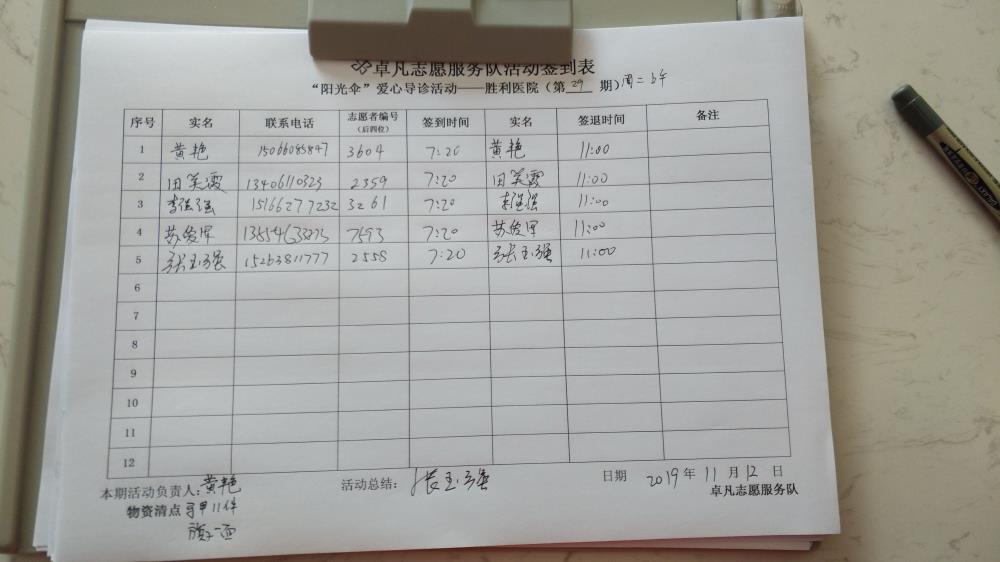 卓凡志愿服务队活动签到表
“阳光伞”爱心导诊活动——胜利医院（第 29 期）周二上午
序号 实名 联系电话 志愿者编号（后四位） 签到时间 实名 签退时间 备注
1 黄艳 15066085847 3604 7:20 黄艳 11:00
2 田美霞 13406110323 2359 7:20 田美霞 11:00
3 李强强 15166277232 3261 7:20 李强强 11:00
4 苏俊军 7593 7:20 苏俊军 11:00
5 张玉强 15263811777 2558 7:20 张玉强 11:00
6
7
8
9
10
11
12
本期活动负责人：黄艳 活动总结：张玉强 日期 2019年 11月 12日
物资清点 马甲11件 卓凡志愿服务队
旗子一面